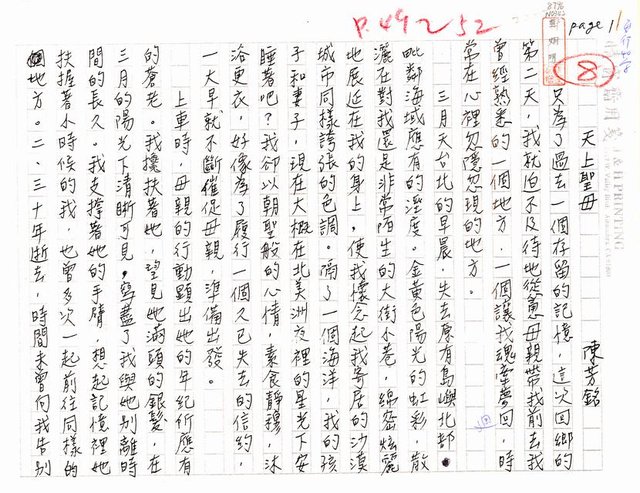 P.49~52
page 1
8
天上聖母
陳芳銘
只為了過去一個存留的記憶，這次回鄉的
第二天，我就迫不及待地從慫母親帶我前去我
曾經熟悉的一個地方，一個讓我魂牽夢回，時
常在心裡忽隱忽現的地方。
三月天台北的早晨，失去原有島嶼北部
毗鄰海域應有的溼度。金黃色陽光的虹彩，散
灑在對我還是非常陌生的大街小巷，綿密炫麗
地展延在我的身上，使我懷念起我寄居的沙漠
城市同樣誇張的色調。隔了一個海洋，我的孩
子和妻子，現在大概在北美洲夜裡的星光下安
睡著吧？我卻以朝聖般的心情，素食靜穆，沐
浴更衣，好像為了履行一個久已失去的信約，
一大早就不斷催促母親，準備出發。
上車時，母親的行動顯出她的年紀所應有
的蒼老。我攙扶著她，望見她滿頭的銀髮，在
三月的陽光下清晰可見，寫盡了我與她別離時
間的長久。我支撐著她的手臂，想起記憶裡她
扶握著小時候的我，也曾多次一起前往同樣的
地方。二、三十年逝去，時間未曾向我告別